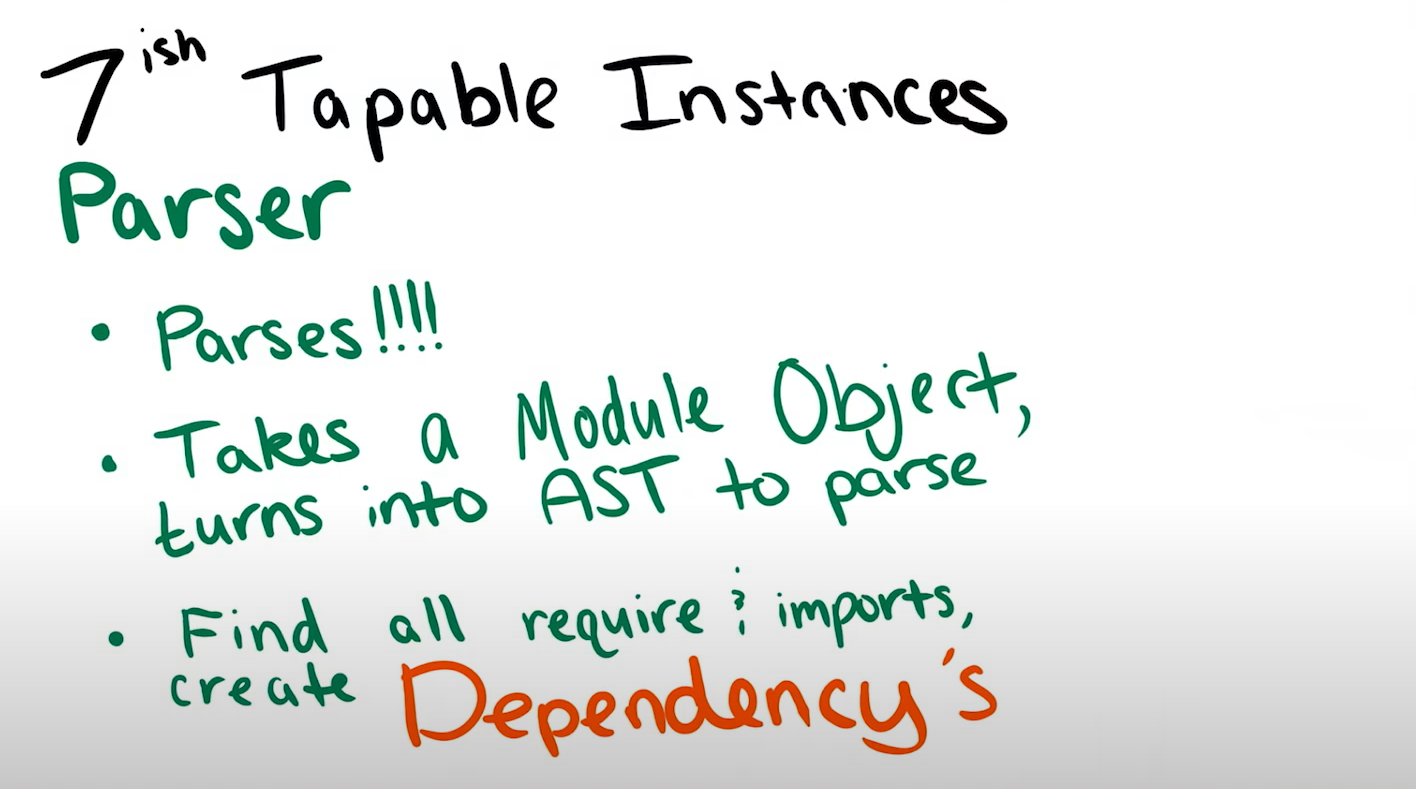 7ish Tapable Instances
Parser
• Parses!!!!
• Takes a Module Object,
turns into AST to parse
• Find all require & imports,
create Dependency's